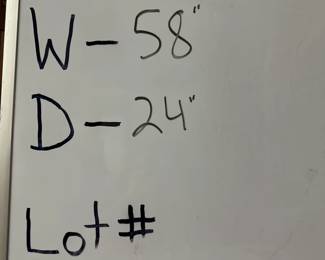 W - 58"
D - 24"
Lot #